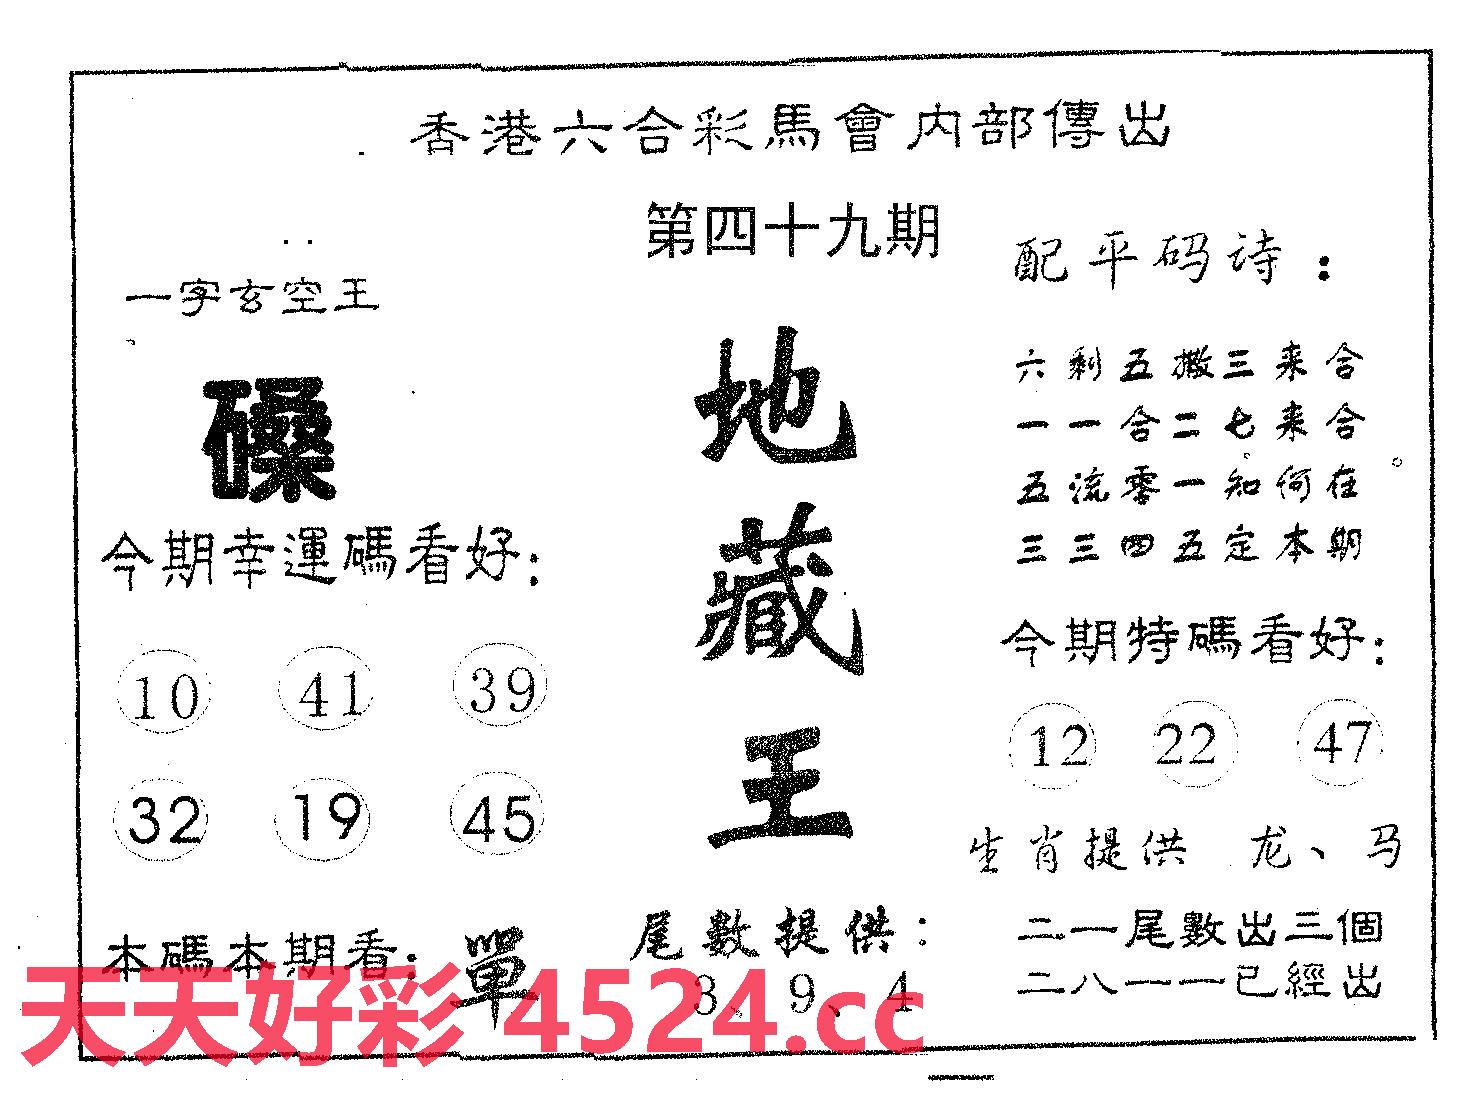 香港六合彩馬會内部傳出
第四十九期
一字玄空王
磉
今期幸運碼看好:
10 41 39
32 19 45
本碼本期看: 單
地
藏
王
尾數提供:
3、9、4
配平码诗:
六剩五撒三来合
一一合二七来合
五流零一知何在
三三四五定本期
今期特碼看好:
12 22 47
生肖提供 龙、马
二一尾數出三個
二八一一已經出
天天好彩 4524.cc